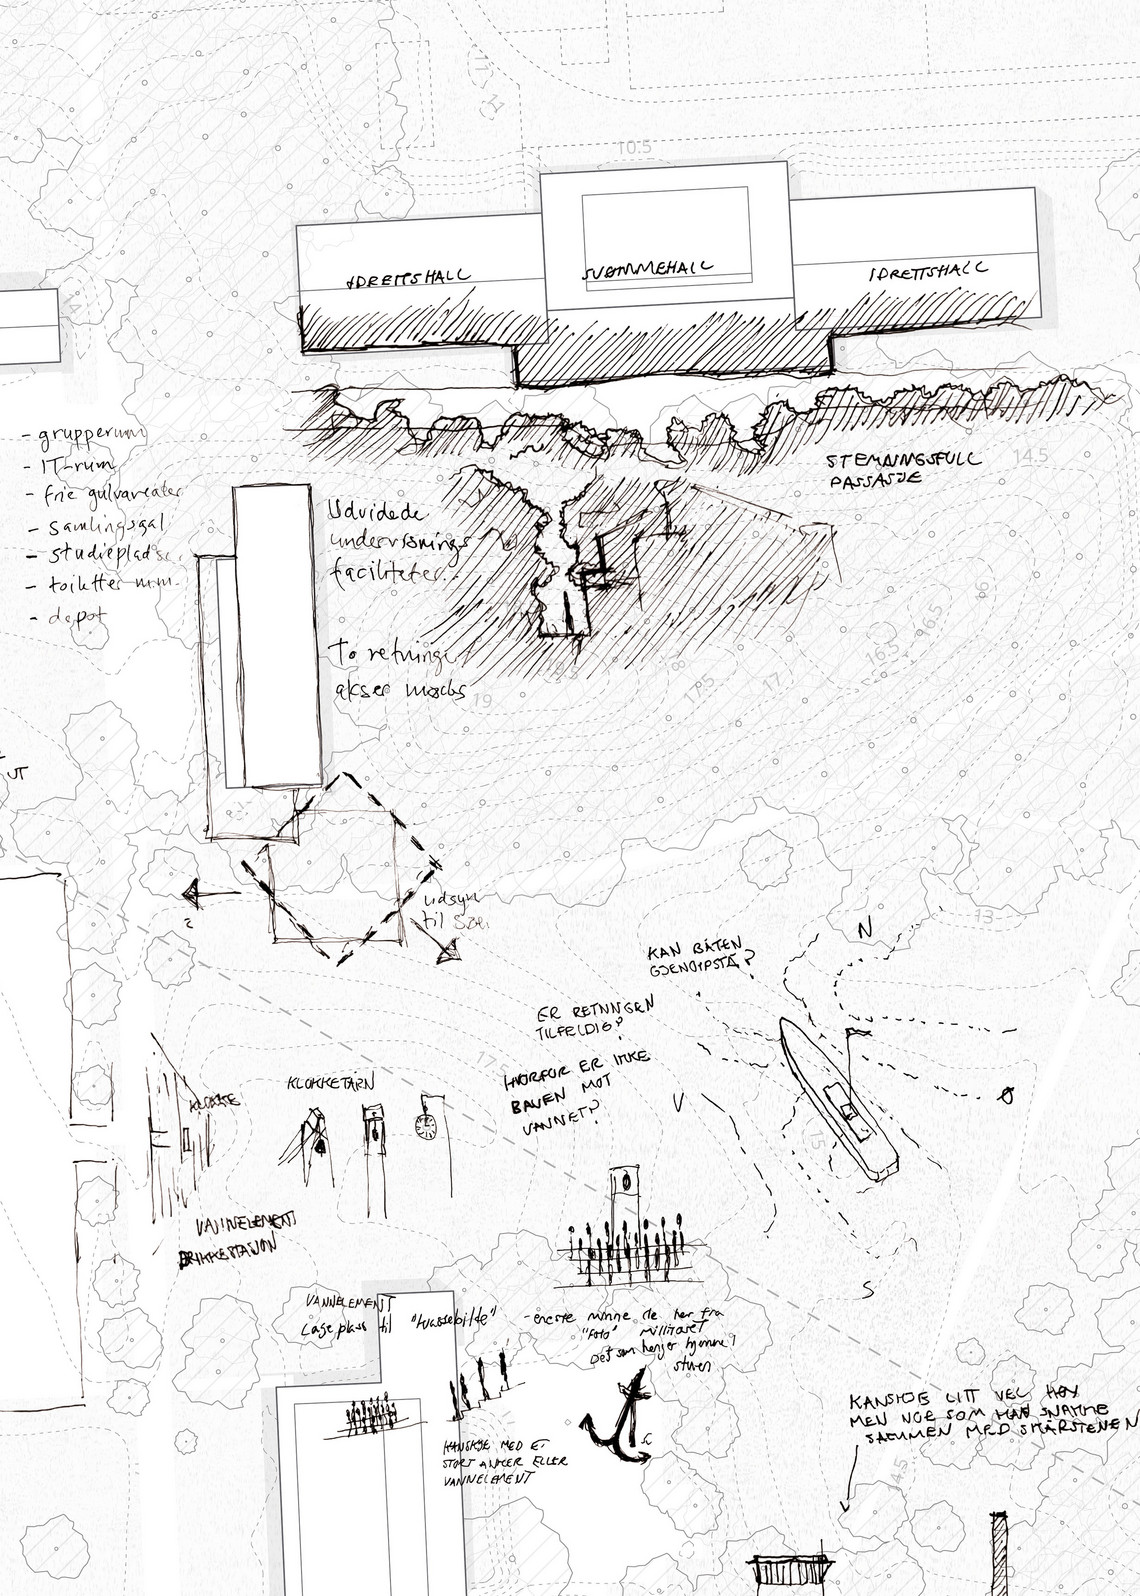 10.5
IDRETTSHALL
SVØMMEHALL
IDRETTSHALL
- grupperum
- IT-rum
- frie gulvarealer
- samlingssal
- studiepladser
- toiletter m.m.
- depot
Udvidede
undervisnings
faciliteter..
To retninger
akser mødes
STEMNINGSFULL
PASSASJE
14.5
16.5
16.5
17
17.5
18
19
19.5
UT
udsyn
til Søen
?
13
KAN BÅTEN
GJENOPPSTÅ?
N
ER RETNINGEN
TILFELDIG?
HVORFOR ER IKKE
BAUEN MOT
VANNET?
V
Ø
S
17
15
KLOKKE
KLOKKETÅRN
VANNELEMENT
DRIKKESTASJON
VANNELEMENT
Lage plass til "klassebilde"
- eneste minne de har fra
"foto" militæret
Det som henger hjemme i
stuen
KANSKJE MED ET
STORT ANKER ELLER
VANNELEMENT
KANSKJE LITT VEL HØY
MEN NOE SOM KAN SNAKKE
SAMMEN MED SKÅRSTENEN
14.5